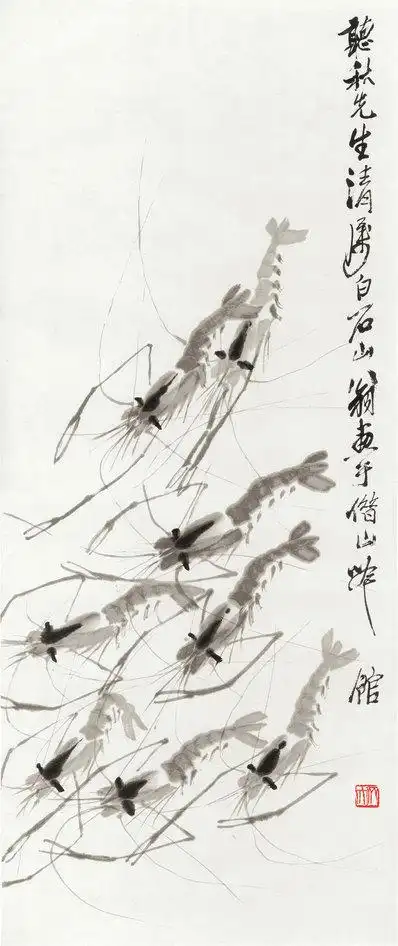 聽秋先生清屬白石山翁画于借山吟館